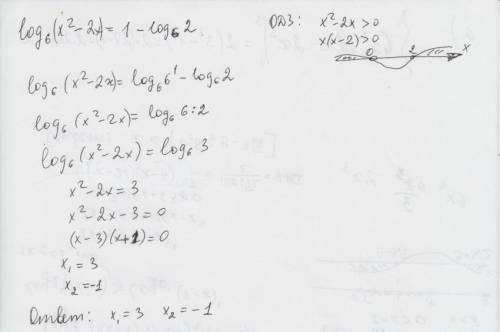 log₆(x²-2x)=1-log₆2
ОДЗ: x²-2x>0
x(x-2)>0
0 2 x
log₆(x²-2x)=log₆6¹-log₆2
log₆(x²-2x)=log₆6:2
log₆(x²-2x)=log₆3
x²-2x=3
x²-2x-3=0
(x-3)(x+1)=0
x₁=3
x₂=-1
Ответ: x₁=3 x₂=-1